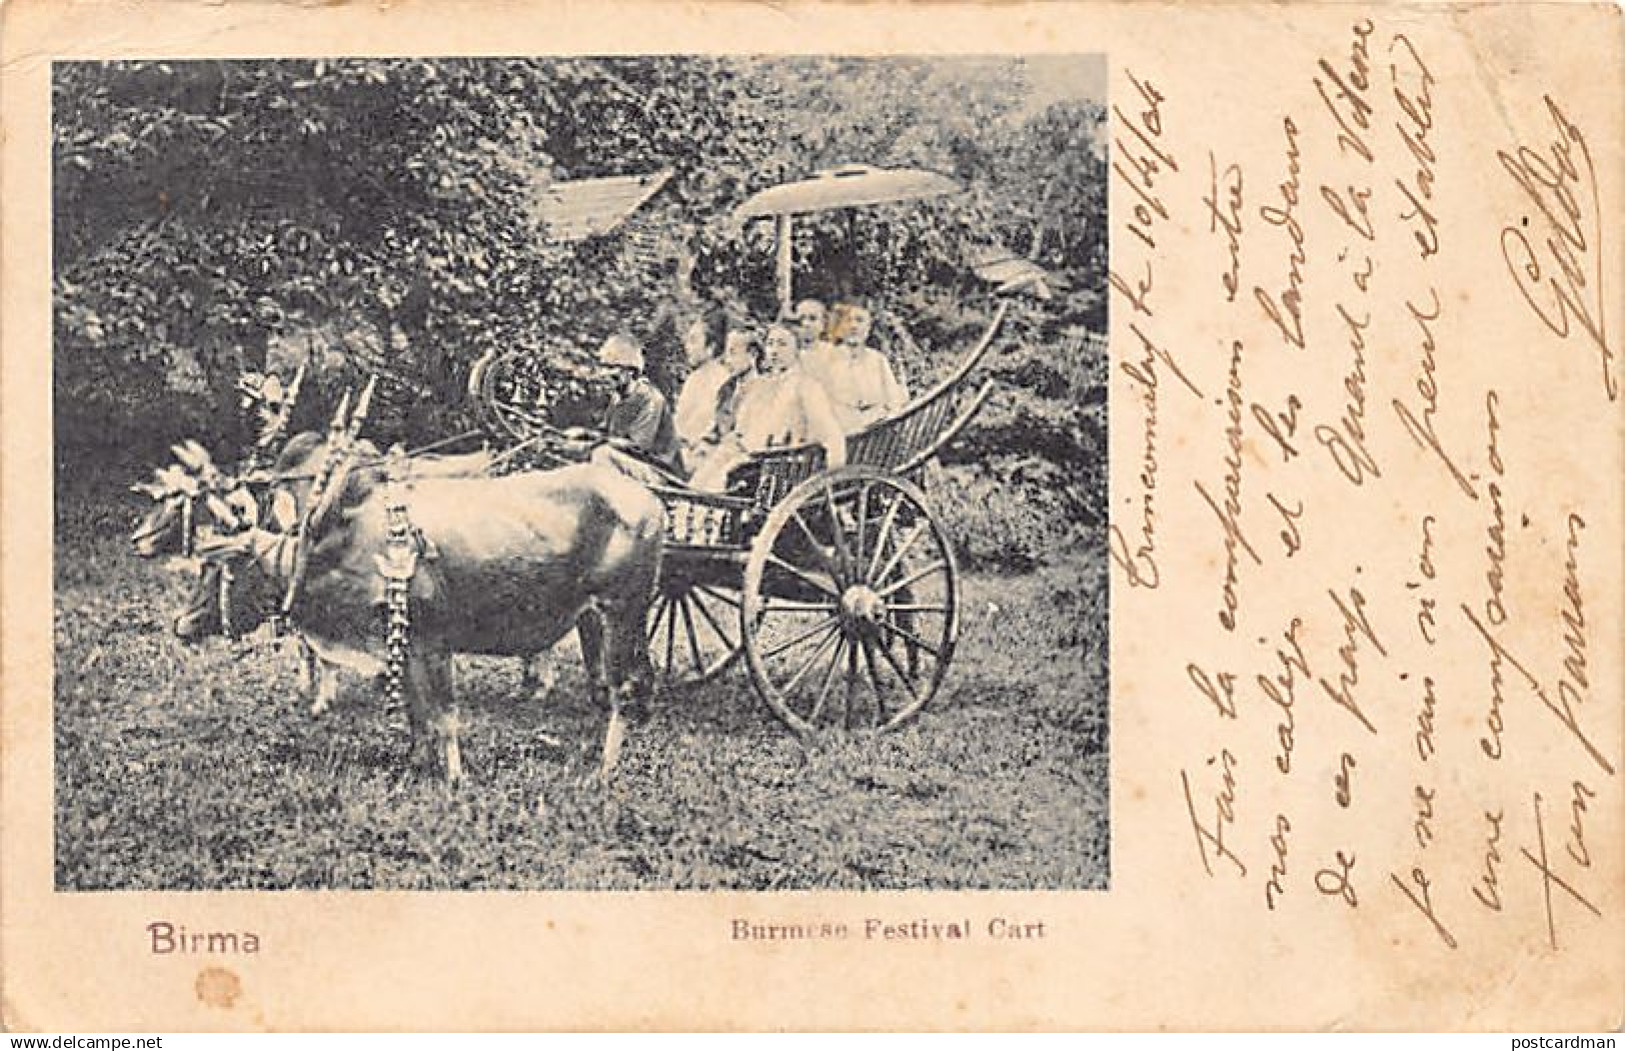 Birma
Burmese Festival Cart
Trincomaley le 10/4/04
Fais la comparaison entre
nos calèges et les landaus
de ces pays. Quand à la vitesse
je ne sais si on peut établir
une comparaison
Ton
www.delcampe.net
postcardman